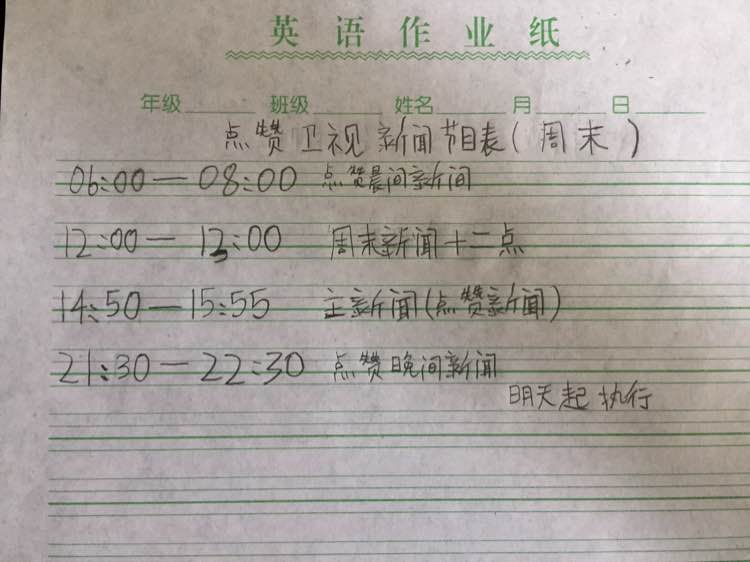 英语作业纸
年级 班级 姓名 月 日
点赞卫视新闻节目表(周末)
06:00—08:00 点赞晨间新闻
12:00—13:00 周末新闻十二点
14:50—15:55 主新闻(点赞新闻)
21:30—22:30 点赞晚间新闻
明天起执行